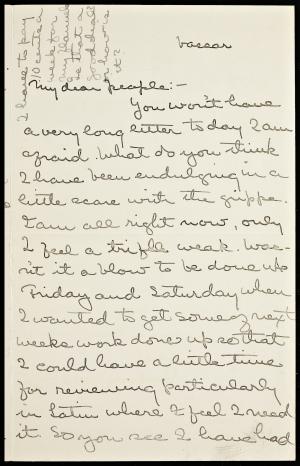 I have to pay
10 cents a
week for
my
Is that a
good deal?
or how is
it?
Vassar
My dear people:-
You won't have
a very long letter to day I am
afraid. What do you think
I have been endulging in a
little scare with the grippe.
I am all right now, only
I feel a trifle weak. Was-
n't it a blow to be done up
Friday and Saturday when
I wanted to get some of next
weeks work done up so that
I could have a little time
for reviewing particularly
in Latin where I feel I need
it. So you see I have had